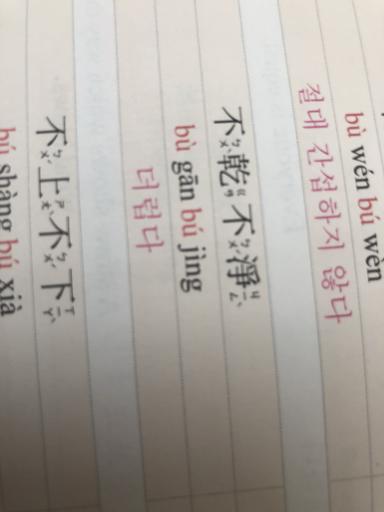 bù wén bú wèn
절대 간섭하지 않다
不乾不淨
bù gān bú jìng
더럽다
不上不下
bú shàng bú xià